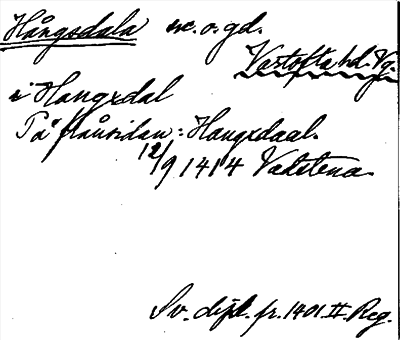 Hångsdala sn. o. gd.
Vartofta hd. Vg.
i Hangxdal
På frånsidan: Hangxdaal.
12/9 1414 Vadstena.
Sv. dipl. fr. 1401 II. Reg.